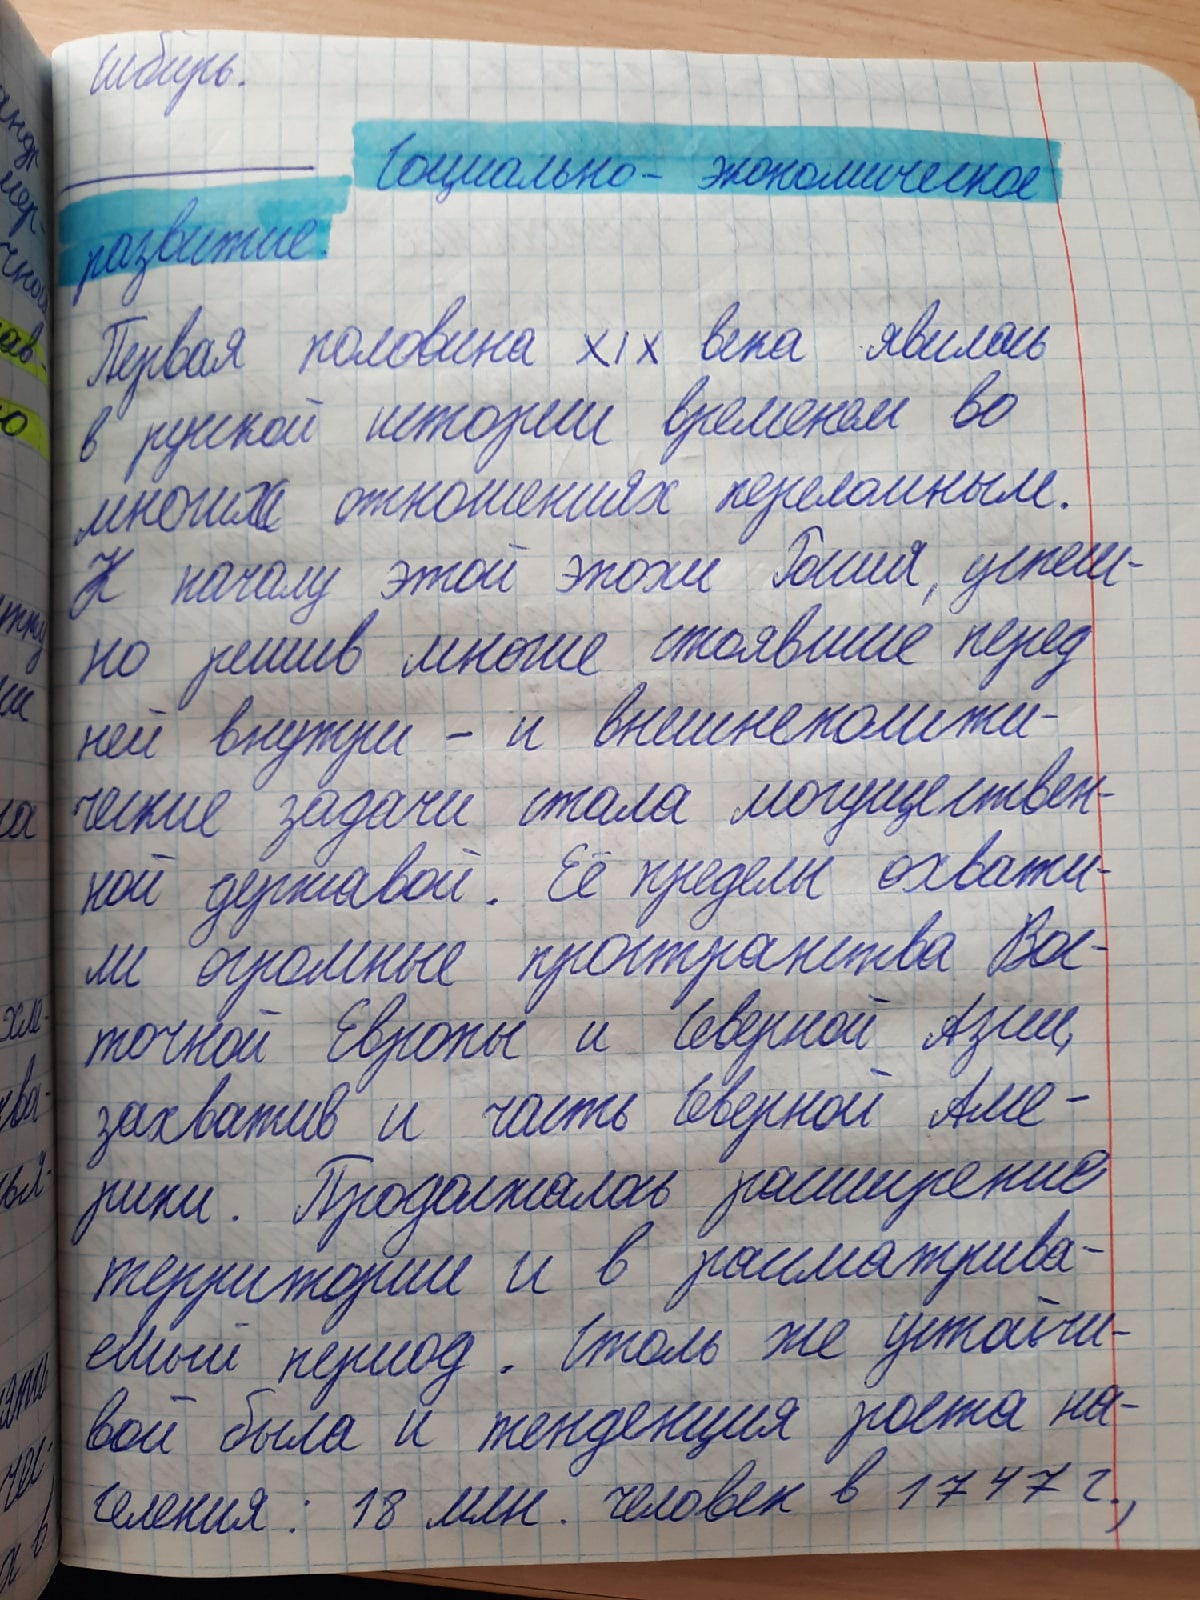 Сибирь.
Социально- экономическое
развитие.
Первая половина XIX века явилась
в русской истории временем во
многих отношениях переломным.
К началу этой эпохи Россия, успеш-
но решив многие стоявшие перед
ней внутри - и внешнеполити-
ческие задачи стала могуществен-
ной державой. Её пределы охвати-
ли огромные пространства Вос-
точной Европы и Северной Азии,
захватив и часть Северной Аме-
рики. Продолжалось расширение
территории и в рассматрива-
емый период. Столь же устойчи-
вой была и тенденция роста на-
селения: 18 млн. человек в 1747 г.,